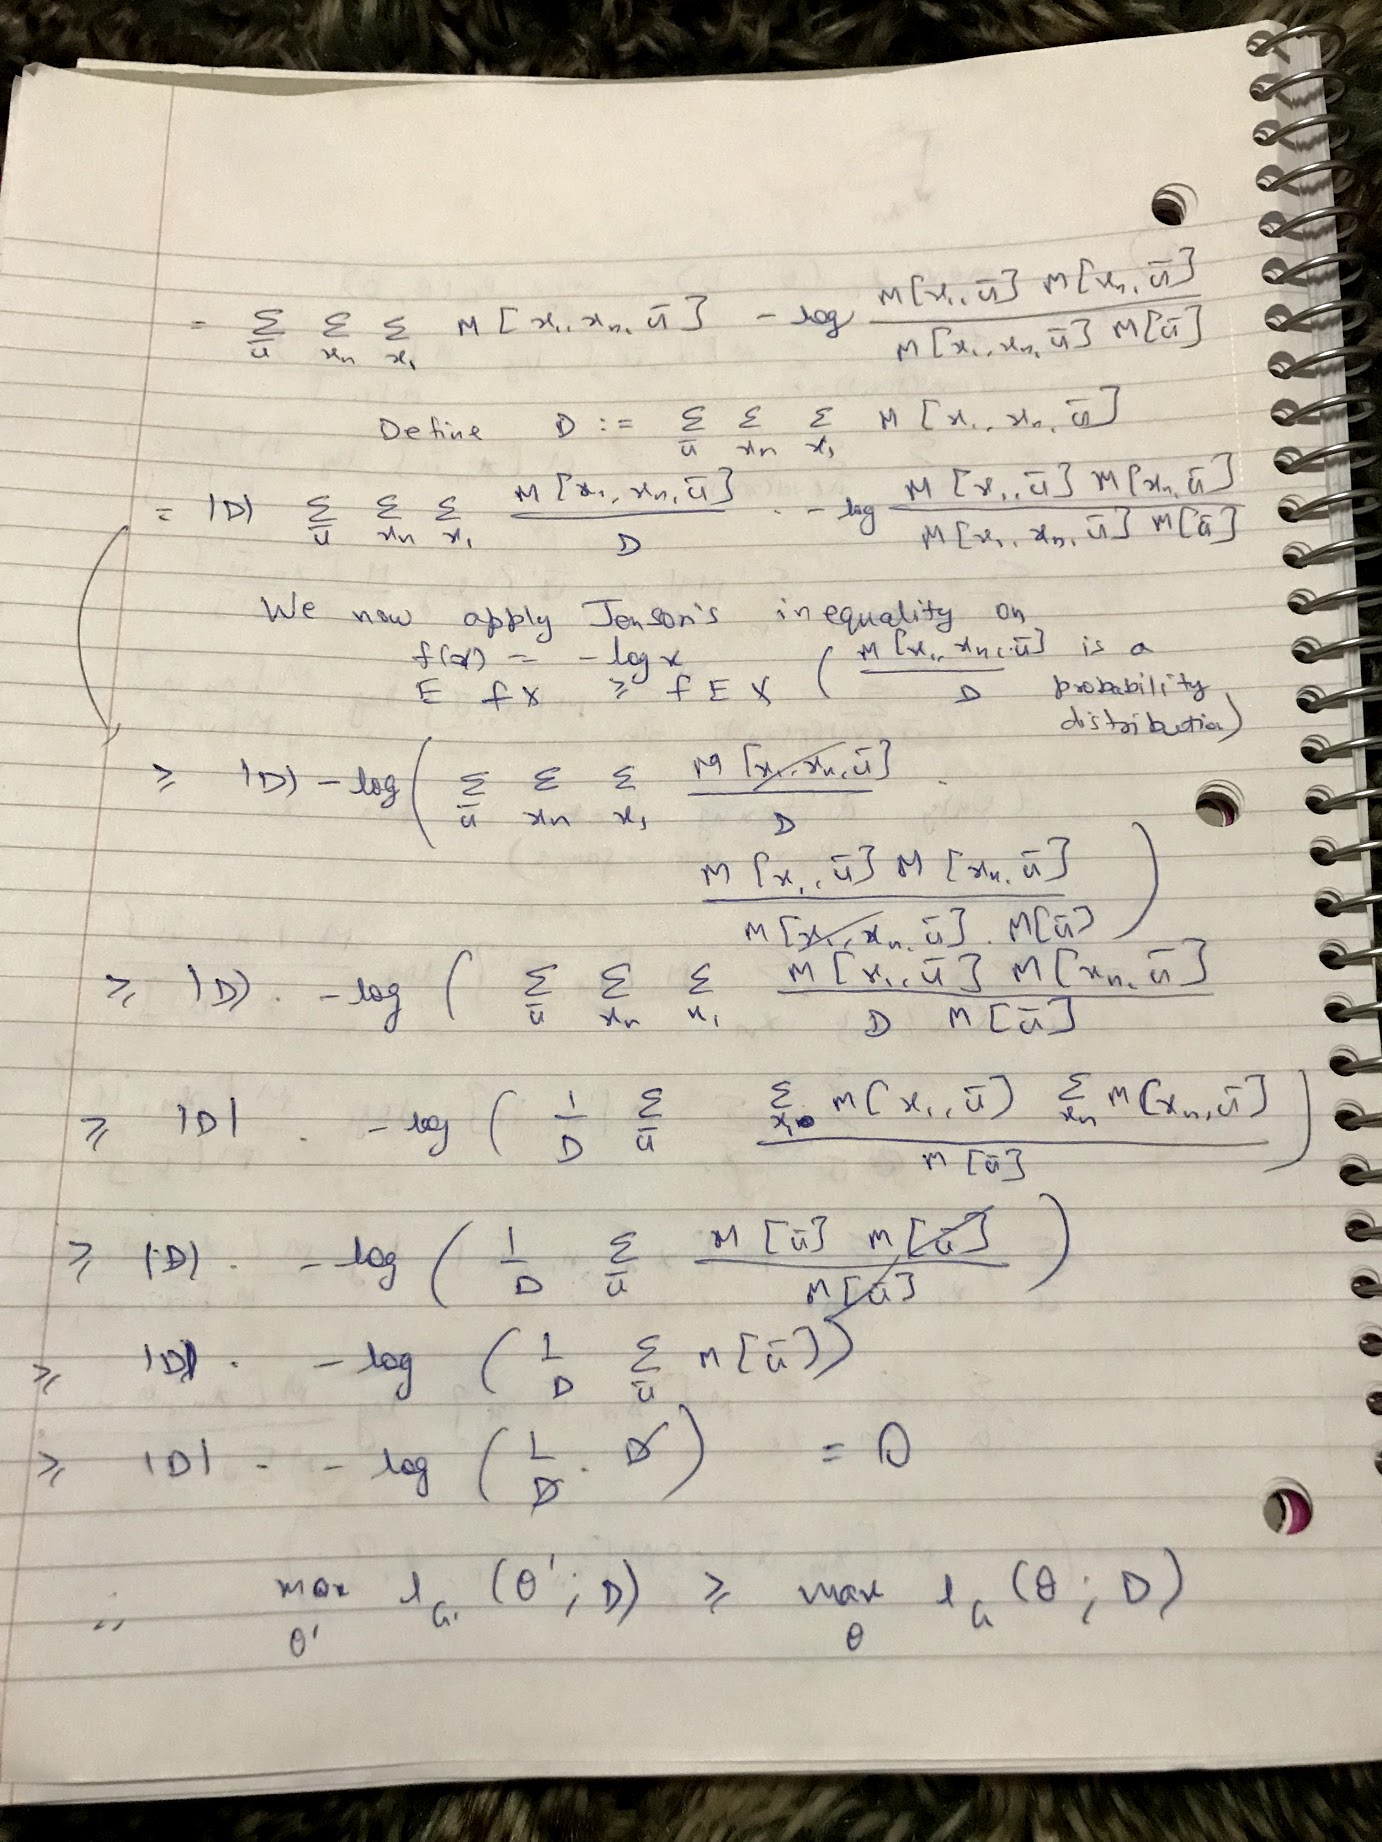 = Σ_ū Σ_xn Σ_x1 M[x1, xn, ū] - log (M[x1, ū] M[xn, ū]) / (M[x1, xn, ū] M[ū])
Define D := Σ_ū Σ_xn Σ_x1 M[x1, xn, ū]
= |D| Σ_ū Σ_xn Σ_x1 M[x1, xn, ū] / D · - log (M[x1, ū] M[xn, ū]) / (M[x1, xn, ū] M[ū])
We now apply Jenson's inequality on
f(x) = - log x
E f X ≥ f E X ( M[x1, xn, ū] / D is a
probability
distribution)
≥ |D| - log ( Σ_ū Σ_xn Σ_x1 M[x1, xn, ū] / D ·
(M[x1, ū] M[xn, ū]) / (M[x1, xn, ū] · M[ū]) )
≥ |D| · - log ( Σ_ū Σ_xn Σ_x1 (M[x1, ū] M[xn, ū]) / (D M[ū])
≥ |D| · - log ( 1/D Σ_ū (Σ_x1 M(x1, ū) Σ_xn M(xn, ū]) / M[ū] )
≥ |D| · - log ( 1/D Σ_ū (M[ū] M[ū]) / M[ū] )
≥ |D| · - log ( 1/D Σ_ū M[ū] )
≥ |D| · - log ( 1/D · D ) = 0
∴ max_θ' l_G' (θ'; D) ≥ max_θ l_G (θ; D)